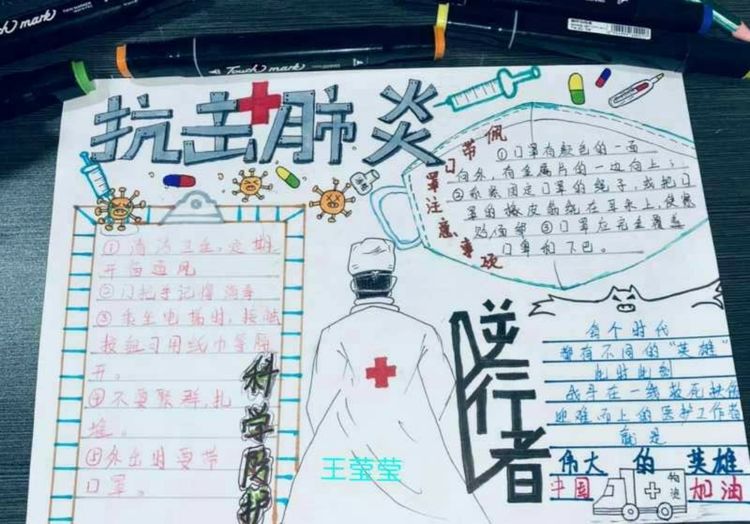 Touch mark
抗击肺炎
佩带口罩注意事项
①口罩有颜色的一面
向外,有金属片的一边向上;
②系紧固定口罩的绳子,或把口
罩的橡皮筋绕在耳朵上,使
③口罩应完全覆盖
口罩和下巴。
①清洁卫生,定期
开窗通风
②门把手记得消毒
③乘坐电梯时,接触
按钮习用纸巾等隔
开。
④不要聚群,扎
堆。
⑤外出时要带
口罩。
科学防护
逆行者
每个时代
都有不同的“英雄”
此时此刻
战斗在一线救死扶伤
迎难而上的医护工作者
就是
伟大的英雄
中国
加油
王莹莹